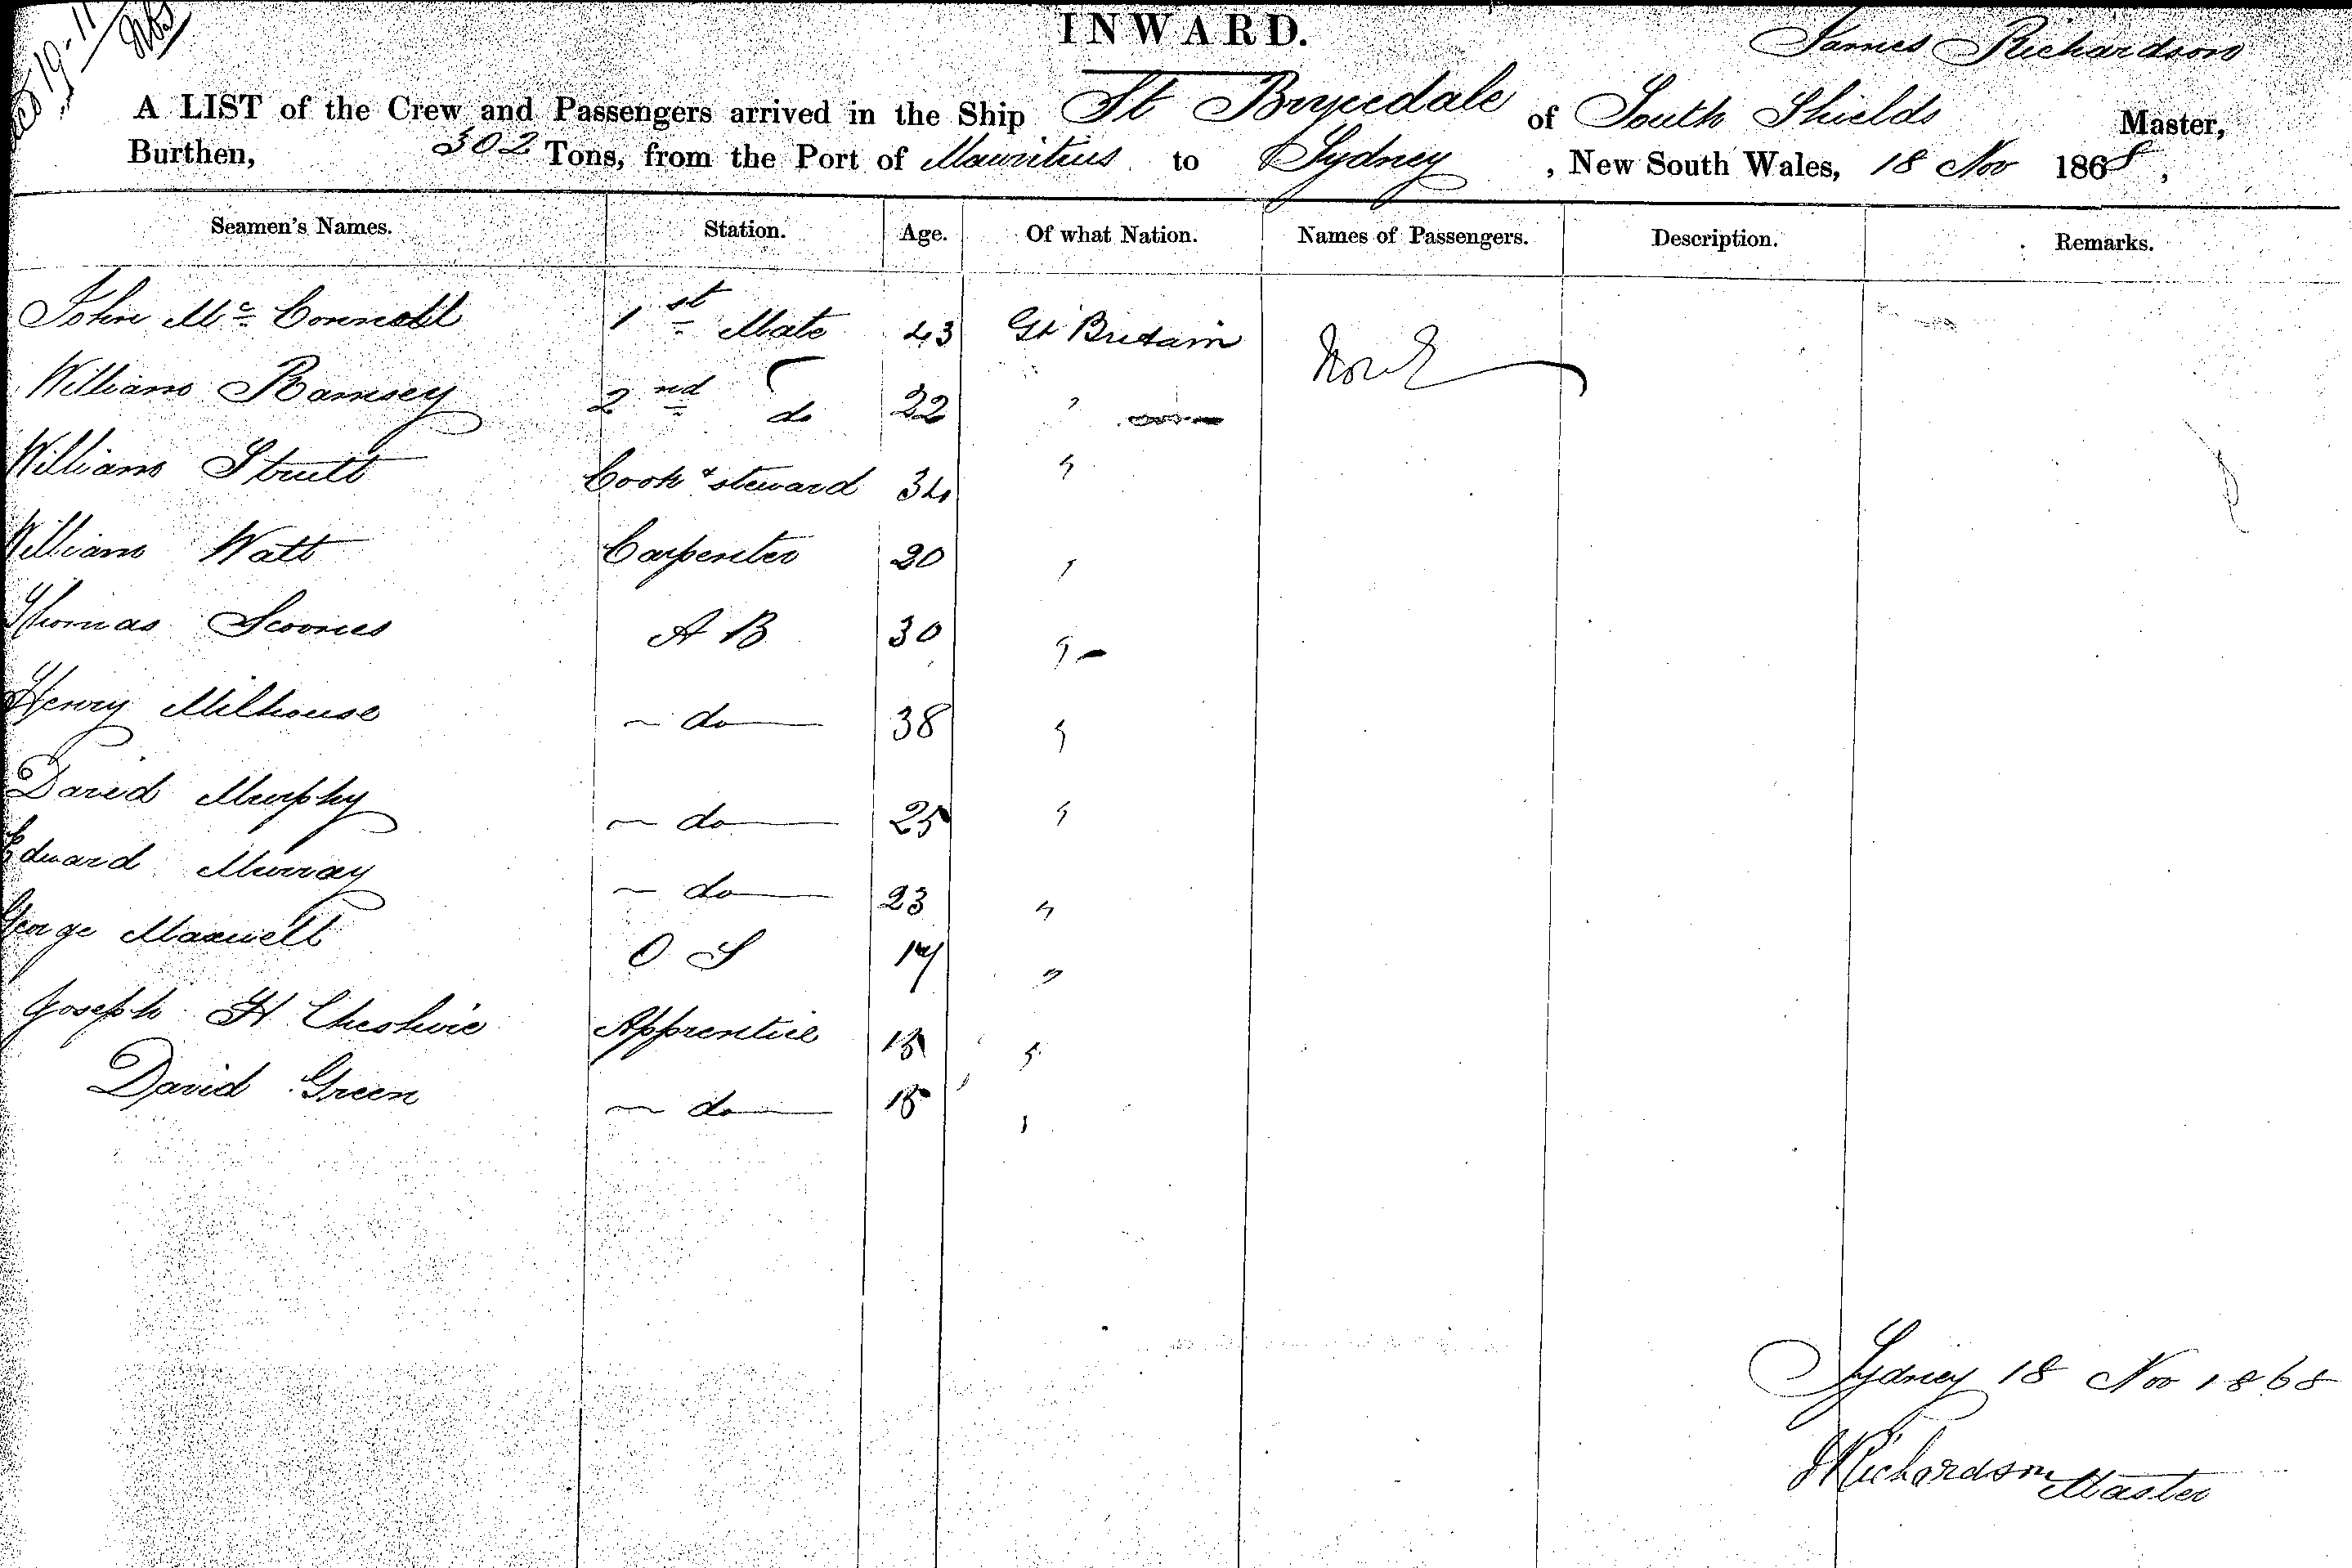 19-11
INWARD.
James Richardson
A LIST of the Crew and Passengers arrived in the Ship St Brycedale of South Shields Master,
Burthen, 302 Tons, from the Port of Mauritius to Sydney, New South Wales, 18 Nov 1868,
Seamen's Names. Station. Age. Of what Nation. Names of Passengers. Description. Remarks.
John Mc Connell 1st Mate 43 Gt Britain None
William Ramsey 2nd do 22 "
William Strutt Cook & steward 34 "
William Watt Carpenter 20 "
Thomas Scoones A B 30 "
Henry Milhouse do 38 "
David Murphy do 25 "
Edward Murray do 23 "
George Maxwell O S 17 "
Joseph H Cheshire Apprentice 15 "
David Green do 15 "
Sydney 18 Nov 1868
J Richardson Master